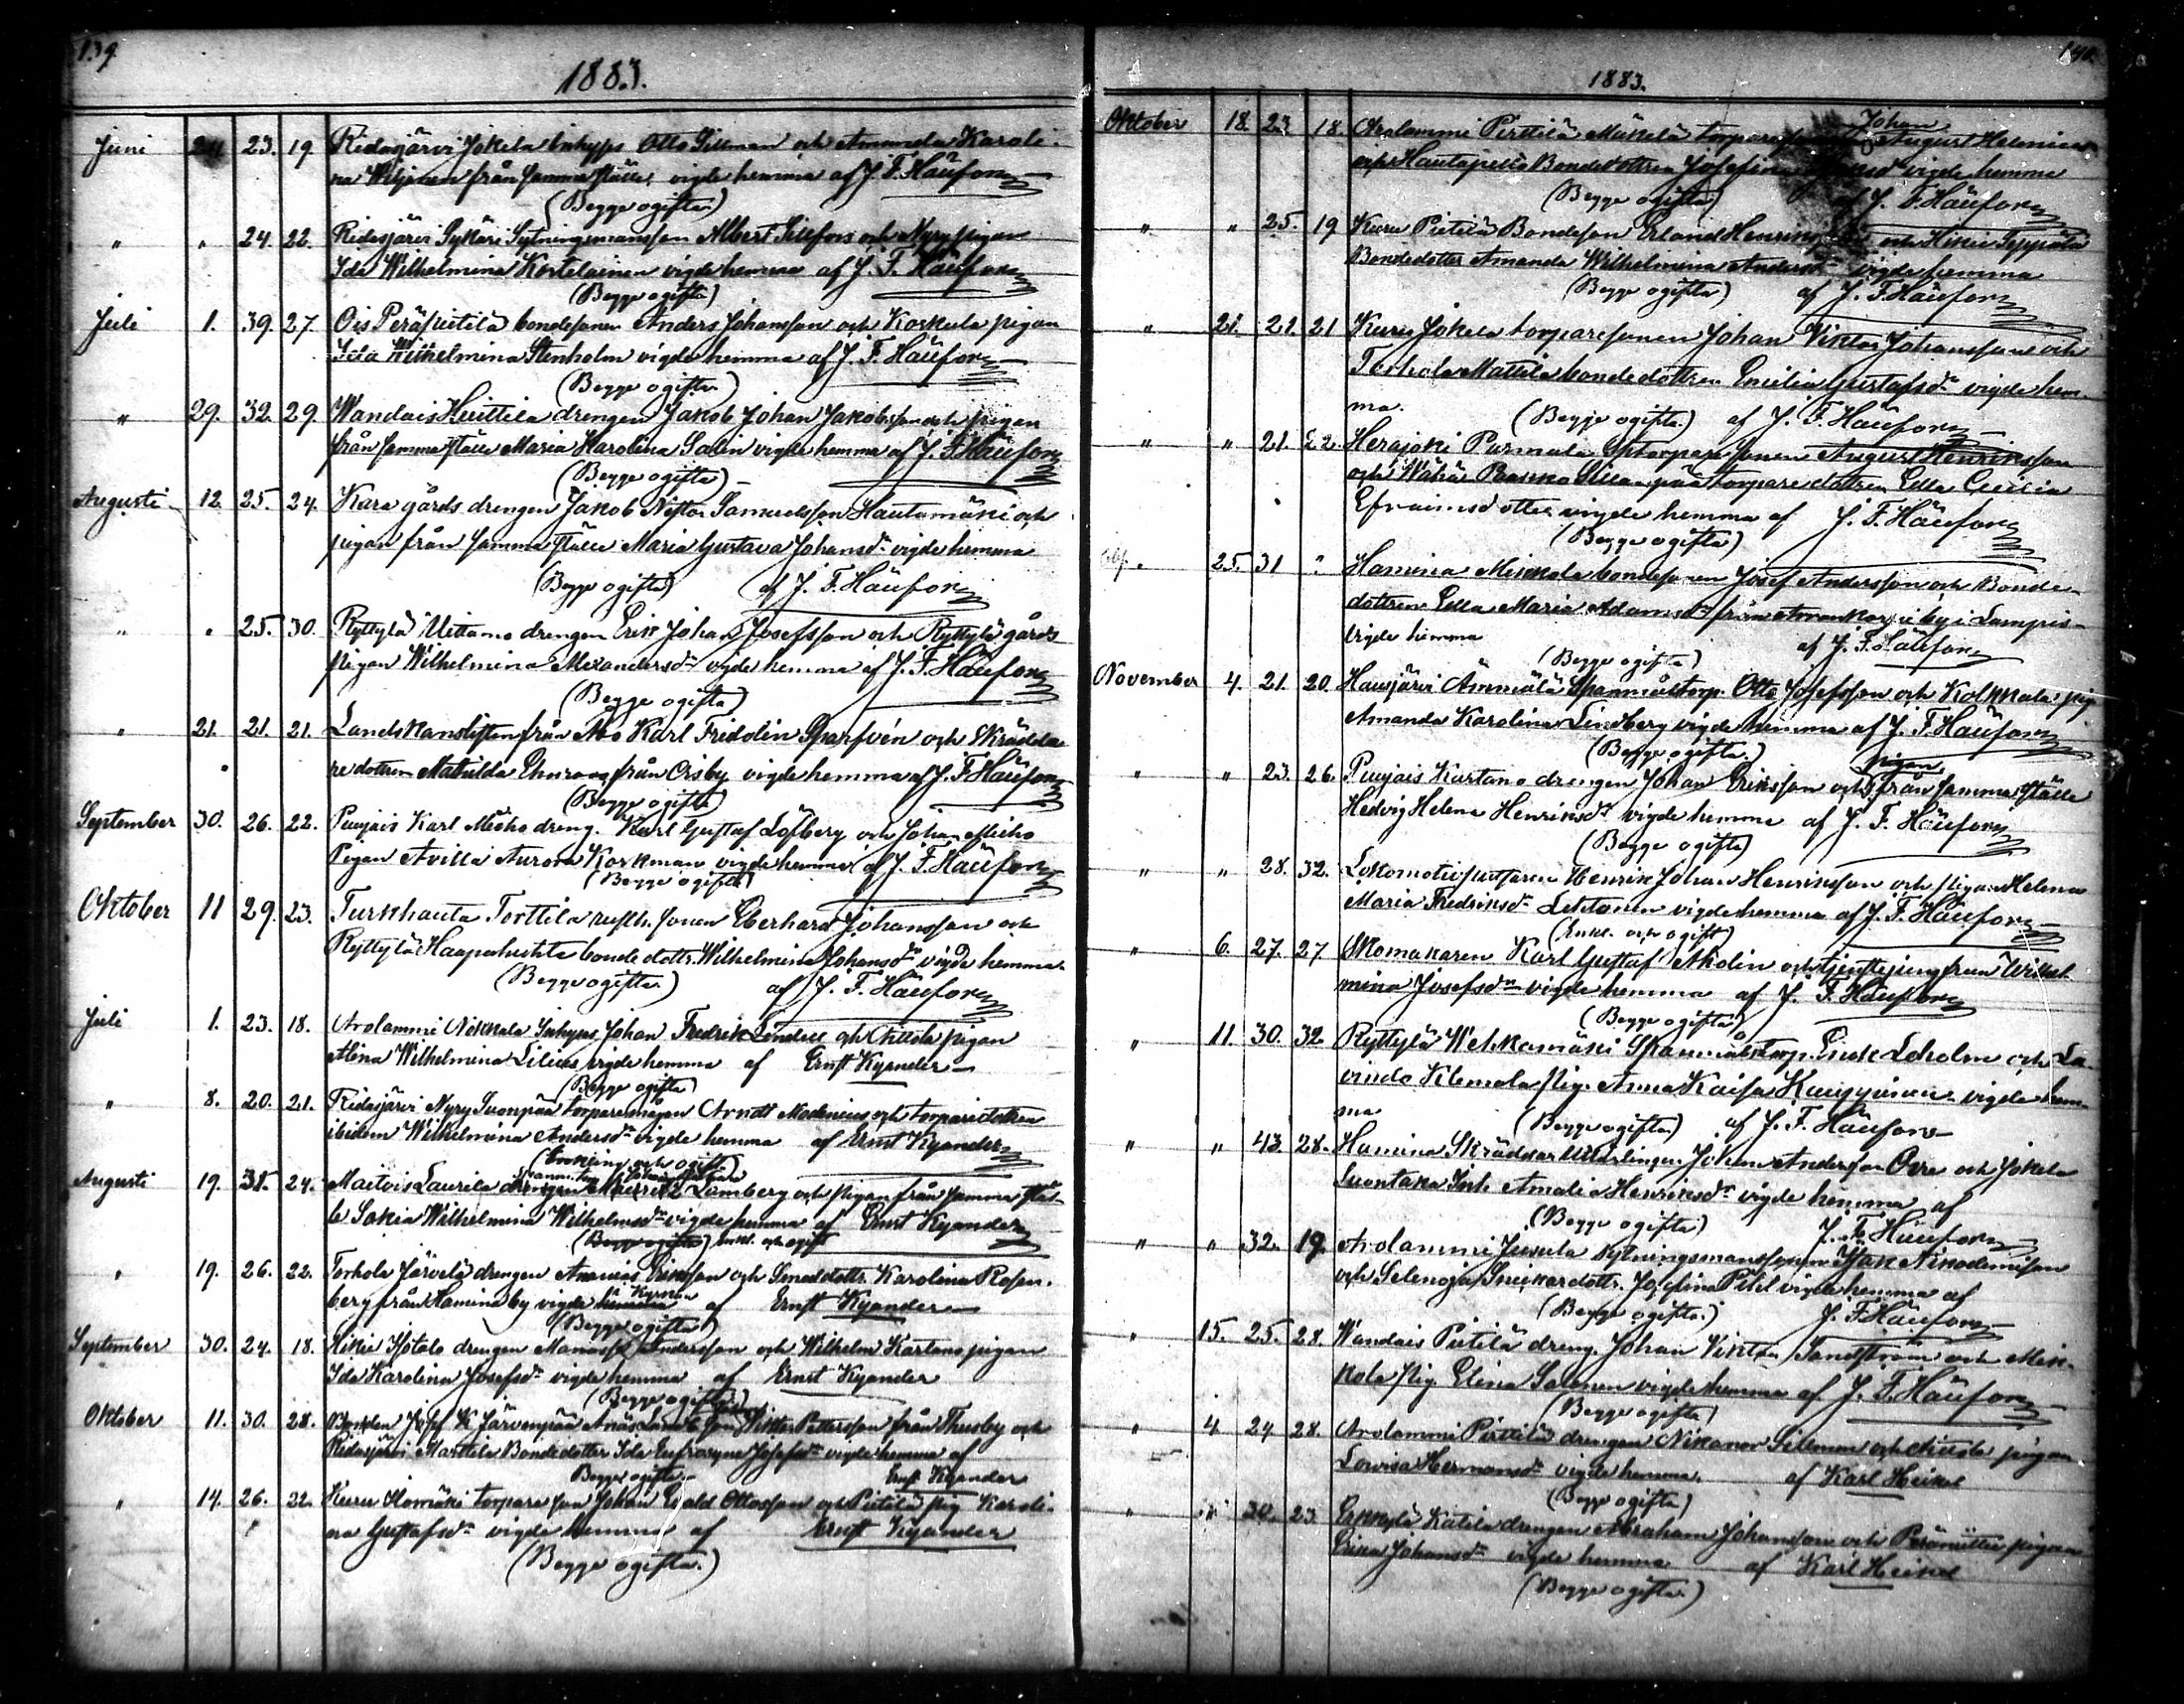 139
1883.
Juni 24 23. 19. Ridasjärvi Jokela Inhyps Otto Sillman och Amanda Karoli-
na Weijonen från samma ställe, vigde hemma af J. F. Häufors
(Begge ogifta)
" " 24. 22. Ridasjärvi Sykäri Sytningsmansson Albert Silfors och Nyry pigan
Ida Wilhelmina Kortelainen vigde hemma af J. F. Häufors
(Begge ogifta)
Juli 1. 39. 27. Ois Peräpietilä bondesonen Anders Johansson och Koskela pigan
Ida Wilhelmina Stenholm vigde hemma af J. F. Häufors
(Begge ogifta)
" 29. 32. 29. Wandais Huittila drengen Jakob Johan Jakobsson och pigan
från samma ställe Maria Karolina Salin vigde hemma af J. F. Häufors
(Begge ogifta)
Augusti 12. 25. 24. Kara gårds drengen Jakob Nestor Samuelsson Hautamäki och
pigan från samma ställe Maria Gustava Johansdr vigde hemma
(Begge ogifta) af J. F. Häufors
" " 25. 30. Ryttylä Uittamo drengen Erik Johan Josefsson och Ryttylä gårds
pigan Wilhelmina Alexandersdr vigde hemma af J. F. Häufors
(Begge ogifta)
" 21. 21. 21. Landskanslisten från Åbo Karl Fridolin Sparfvén och Skrädda-
redottren Mathilda Ehnroos från Oisby vigde hemma af J. F. Häufors
(Begge ogifta)
September 30. 26. 22. Punjais Karl Mesko dreng. Karl Gustaf Löfberg och Johan Mesko
Pigan Avilla Aurora Korkman vigde hemma af J. F. Häufors
(Begge ogifta)
Oktober 11 29. 23. Turkhauta Torttila rusth. sonen Eberhard Johansson och
Ryttylä Haapahuhta bonde dottr. Wilhelmina Johansdr vigde hemma
(Begge ogifta) af J. F. Häufors
Juli 1. 23. 18. Arolammi Nikkala Inhyses Johan Fredrik Lindell och pigan
Alina Wilhelmina Lilius vigde hemma af Ernst Kyander
(Begge ogifta)
" 8. 20. 21. Ridasjärvi Nyry Suonpää torparemågen Arndt Modenius och torparedottren
ibidem Wilhelmina Andersdr vigde hemma af Ernst Kyander
(Enkling och ogift)
Augusti 19. 31. 24. Maitois Laurila Lamberg och pigan från samma stäl-
le Sofia Wilhelmina Wilhelmsdr vigde hemma af Ernst Kyander
(Begge ogifta) enkl. och ogift
" 19. 26. 22. Torhola Järvelä drengen Ananias Eriksson och Smeddottr. Karolina Rosen-
berg från Hamina by vigde i kyrkan af Ernst Kyander
(Begge ogifta)
September 30. 24. 18. Hikie Isotalo drengen Manasse Andersson och Wilhelm Kartano pigan
Ida Karolina Josefsdr vigde hemma af Ernst Kyander
(Begge ogifta)
Oktober 11. 30. 28. Bonden Josef K Järvenpää Viktor Pettersson från Thusby och
Ridasjärvi Marttila Bondedotter Ida Eufrosyne Josefsdr vigde hemma af
Begge ogifta Ernst Kyander
" 14. 26. 22. Kuru Alomäki torpareson Johan Evald Ottosson och Pietilä pig. Karoli-
na Gustafsdr vigde hemma af Ernst Kyander
(Begge ogifta.)
140
1883.
Oktober 18. 23 18. Arolammi Pirttilä Mäkelä torpare Johan August Helenius
och Hautajoki Bondedottren Josefina vigde hemma
(Begge ogifta) af J. F. Häufors
" " 25. 19 Kuru Pietilä Bondeson Erland Henriksson och Hikie Seppälä
Bondedotter Amanda Wilhelmina Andersdr vigde hemma
(Begge ogifta) af J. F. Häufors
" 21. 21. 21 Kuru Jokela torparesonen Johan Viktor Johansson och
Torhola Mattila bondedottren Emilia Gustafsdr vigde hem-
ma. (Begge ogifta) af J. F. Häufors
" " 21. 22. Herajoki Parmala torparesonen August Henriksson
och Wähä torparedottren Edla Cecilia
Efraimsdotter vigde hemma af J. F. Häufors
(Begge ogifta)
" 25. 31 " Hamina Miekkola bondesonen Josef Andersson och Bonde-
dottren Edla Maria Adamsdr från by i Lampis
vigde hemma af J. F. Häufors
(Begge ogifta)
November 4. 21. 20. Hausjärvi Ämmälä Spanmålstorp. Otto Josefsson och Kolkkala pig
Amanda Karolina Lindberg vigde hemma af J. F. Häufors
(Begge ogifta)
" " 23. 26. Punjais Kartano drengen Johan Eriksson och pigan från samma ställe
Hedvig Helena Henriksdr vigde hemma af J. F. Häufors
(Begge ogifta)
" " 28. 32. Lokomotivputsaren Henrik Johan Henriksson och pigan Helena
Maria Fredriksdr Lehtonen vigde hemma af J. F. Häufors
(Enkl. och ogift)
" 6. 27. 27 Skomakaren Karl Gustaf Aholin och tjenstejungfrun Wilhel-
mina Josefsdr vigde hemma af J. F. Häufors
(Begge ogifta)
" 11. 30. 32. Ryttylä Wehkamäki Spanmålstorp. Erick Loholm och La-
vinda Klemola pig. Anna Kaisa vigde hem-
ma (Begge ogifta) af J. F. Häufors
" " 43. 28. Hamina Skräddar Johan Andersson Ovra och Jokela
Suontaka Inh. Amalia Henriksdr vigde hemma af
(Begge ogifta) J. F. Häufors
" " 32. 19. Arolammi Juvula sytningsmanssonen Isak Nikodemusson
och Selenoja Snickardottr. Josefina Pihl vigde hemma af
(Begge ogifta.) J. F. Häufors
" 15. 25. 28. Wandais Pietilä dreng. Johan Viktor Sandström och Miek-
kola pig Elina Salonen vigde hemma af J. F. Häufors
(Begge ogifta)
" 4 24 28. Arolammi Pirttilä drengen Nikanor Sillman och pigan
Lowisa Hermansdr vigde hemma. af Karl Heikel
(Begge ogifta)
" 30. 23. Erkkylä Katila drengen Abraham Johansson och pigan
Erika Johansdr vigde hemma af Karl Heikel
(Begge ogifta.)